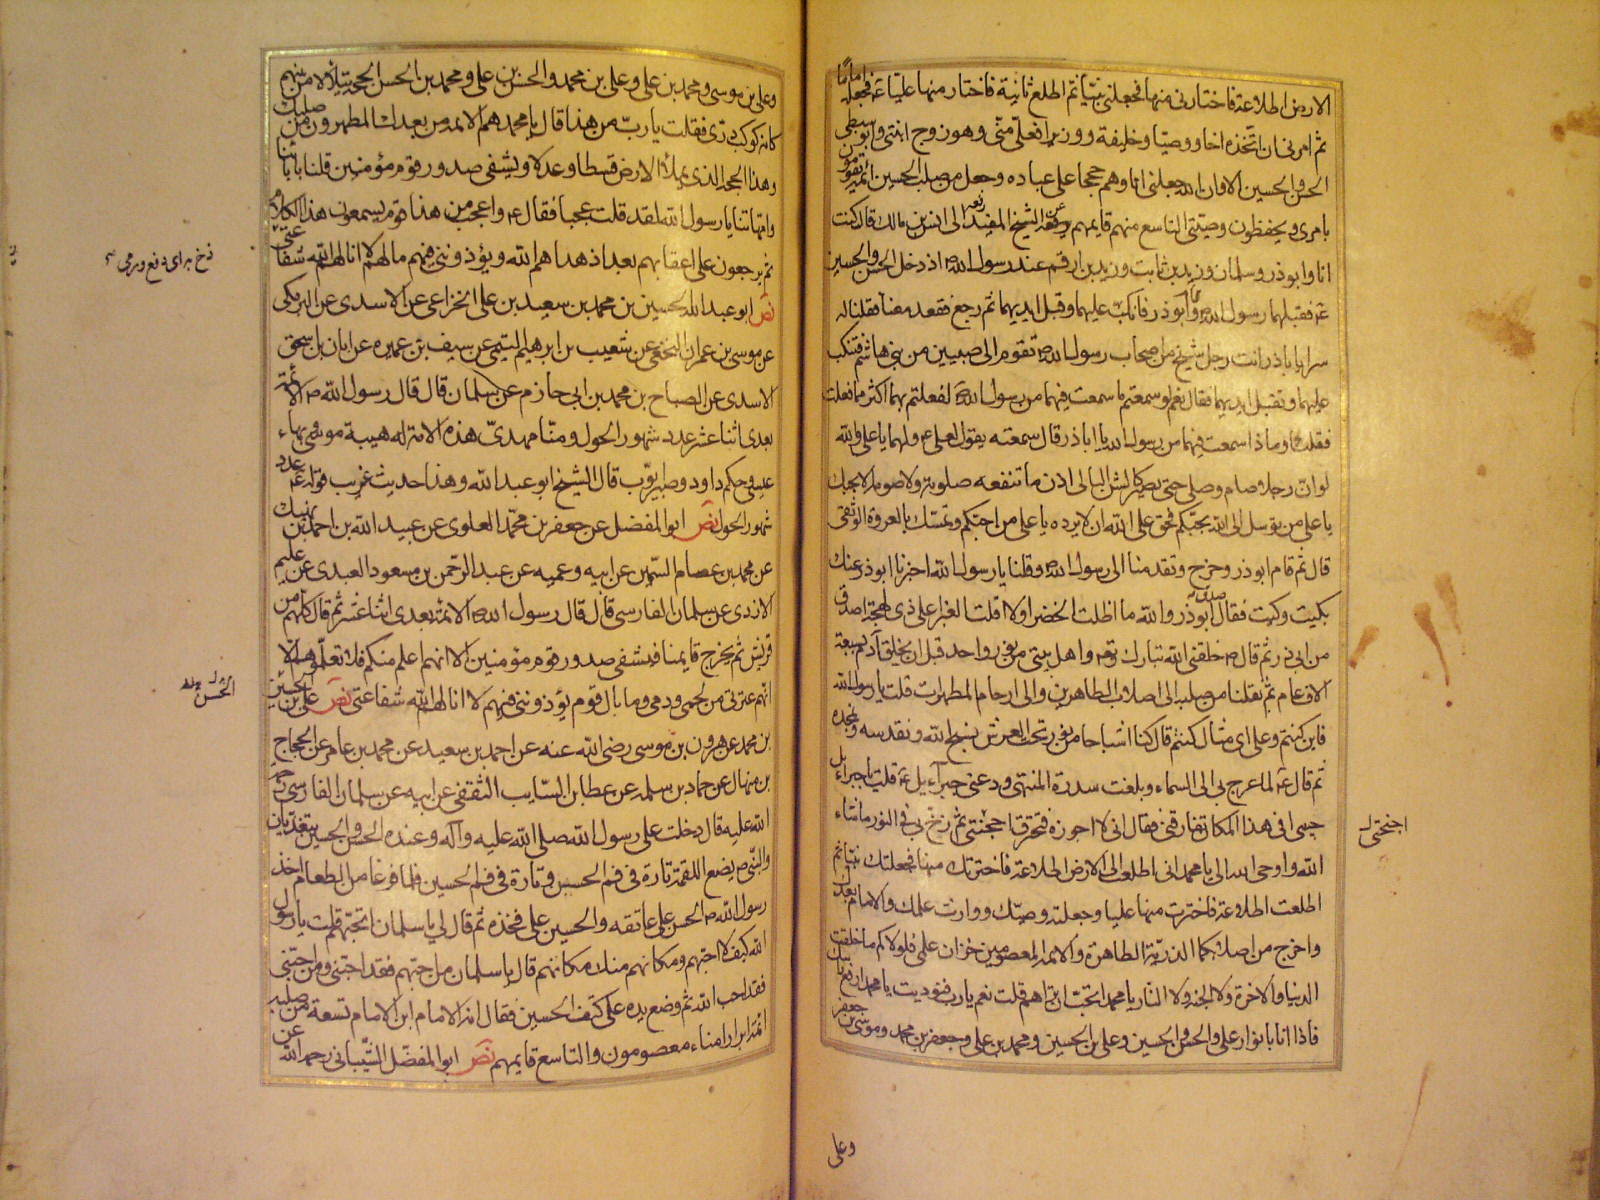 الارض اطلاعة فاختارنى منها فجعلنى نبيا ثم اطلع ثانية فاختار منها عليا ع فجعله اماما
ثم امرنى ان اتخذه اخا ووصيا وخليفة ووزيرا فعلى منى وهو زوج ابنتى وابو سبطى
الحسن والحسين الا وان الله جعلنى انا وهم حججا على عباده وجعل من صلب الحسين ائمة يقومون
بامرى ويحفظون وصيتى التاسع منهم قايمهم الشيخ المفيد الى انس بن مالك قال كنت
انا وابو ذر وسلمان وزيد بن ثابت وزيد بن ارقم عند رسول الله ص اذ دخل الحسن والحسين
ع فقبلهما رسول الله ص وابو ذر فانكب عليهما وقبل ايديهما ثم رجع فقعد معنا فقلنا له
سرا يا باذر انت رجل شيخ من اصحاب رسول الله ص تقوم الى صبيين من بنى هاشم فتنكب
عليهما وتقبل ايديهما فقال نعم لو سمعتم ما سمعت فيهما من رسول الله ص لفعلتم بهما اكثر مما فعلت
فقلنا وما ذا سمعت فيهما من رسول الله يا اباذر قال سمعته يقول لعلى ع ولهما يا على والله
لو ان رجلا صام وصلى حتى يصير كالشن البالى اذن ما تنفعه صلوته ولا صومه الا بحبك
يا على من توسل الى الله بحبكم فحق على الله ان لا يرده يا على من احبكم وتمسك بكم فقد تمسك بالعروة الوثقى
قال ثم قام ابو ذر وخرج وتقدمنا الى رسول الله ص وقلنا يا رسول الله اخبرنا ابو ذر عنك
بكيت وكيت فقال صدق ابو ذر والله ما اظلت الخضراء ولا اقلت الغبرا على ذى لهجة اصدق
من ابى ذر ثم قال ص خلقنى الله تبارك وتع واهل بيتى من نور واحد قبل ان يخلق آدم بسبعة
الاف عام ثم نقلنا من صلبه الى اصلاب الطاهرين والى ارحام المطهرات قلت يا رسول الله
فاين كنتم وعلى اى مثال كنتم قال كنا اشباحا من نور تحت العرش نسبح الله ونقدسه ونمجده
ثم قال ع لما عرج بى الى السماء وبلغت سدرة المنتهى ودعنى جبرآءيل ع قلت يا جبراءيل
حبيبى افى هذا المكان تفارقنى فقال انى لا اجوزه فتحرق اجنحتى ثم زخ بى فى النور ما شاء
الله واوحى الله الى يا محمد انى اطلعت الى الارض اطلاعة فاخترتك منها فجعلتك نبيا ثم
اطلعت اطلاعة فاخترت منها عليا وجعلته وصيك ووارث علمك والامام بعدك
واخرج من اصلابكما الذرية الطاهرة والائمة المعصومين خزان علمى فلولاكم ما خلقت
الدنيا ولا الاخرة ولا الجنة ولا النار يا محمد اتحب ان تراهم قلت نعم يا رب فنوديت يا محمد ارفع راسك
فاذا انا بانوار على والحسن والحسين وعلى بن الحسين ومحمد بن على وجعفر بن محمد وموسى بن جعفر
اجنحتى
وعلى
وعلى بن موسى ومحمد بن على وعلى بن محمد والحسن بن على ومحمد بن الحسن الحجة يتلألأ من بينهم
كانه كوكب درى فقلت يا رب من هذا قال يا محمد هم الائمة من بعدك المطهرون من صلبك
وهذا الحجة الذى يملأ الارض قسطا وعدلا ويشفى صدور قوم مؤمنين قلنا بابائنا
وامهاتنا يا رسول الله لقد قلت عجبا فقال ع واعجب من هذا قوم يسمعون هذا الكلام
ثم يرجعون على اعقابهم بعد اذ هداهم الله ويؤذوننى فيهم ما لهم لا انالهم الله شفاعتى
نص ابو عبد الله الحسين بن محمد بن سعيد بن على الخزاعى عن الاسدى عن البرمكى
عن موسى بن عمران النخعى عن شعيب بن ابرهيم التيمى عن سيف بن عميره عن ابان بن اسحق
الاسدى عن الصباح بن محمد بن ابى حازم عن سلمان قال قال رسول الله ص الائمة
بعدى اثنا عشر عدد شهور الحول ومنا مهدى هذه الامة له هيبة موسى وبهاء
عيسى وحكم داود وصبر ايوب قال الشيخ ابو عبد الله وهذا حديث غريب قوله ع عدد
شهور الحول نص ابو المفضل عن جعفر بن محمد العلوى عن عبيد الله بن احمد بن نهيك
عن محمد بن عصام السمين عن ابيه وعميه عن عبد الرحمن بن مسعود العبدى عن عليم
الازدى عن سلمان الفارسى قال قال رسول الله ص الائمة بعدى اثنا عشر ثم قال كلهم من
قريش ثم يخرج قايمنا فيشفى صدور قوم مؤمنين الا انهم اعلم منكم فلا تعلموهم الا
انهم عترتى من لحمى ودمى وما بال قوم يؤذوننى فيهم لا انالهم الله شفاعتى نص على بن الحسين
بن محمد عن هرون بن موسى رضى الله عنه عن احمد بن سعيد عن محمد بن عامر عن الحجاج
بن منهال عن حماد بن سلمه عن عطا بن السايب الثقفى عن ابيه عن سلمان الفارسى رحمة
الله عليه قال دخلت على رسول الله صلى الله عليه وآله وعنده الحسن والحسين يتغديان
والنبى ص يضع اللقمة تارة فى فم الحسن وتارة فى فم الحسين فلما فرغا من الطعام اخذ
رسول الله ص الحسن على عاتقه والحسين على فخذه ثم قال لى يا سلمان اتحبهم قلت يا رسول
الله كيف لا احبهم ومكانهم منك مكانهم قال يا سلمان من احبهم فقد احبنى ومن احبنى
فقد احب الله ثم وضع يده على كتف الحسين فقال انه الامام ابن الامام تسعة من صلبه
ائمة ابرار امناء معصومون والتاسع قايمهم نص ابو المفضل الشيبانى رحمه الله عن